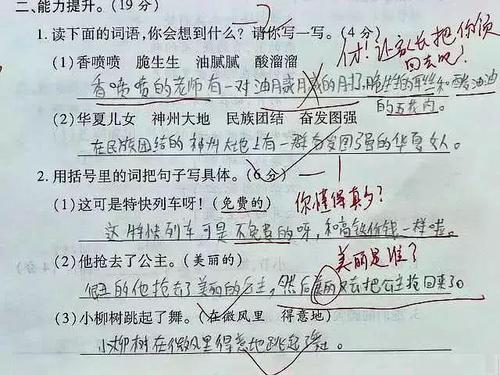 二、能力提升。(19 分)
1. 读下面的词语,你会想到什么?请你写一写。(4 分)
(1)香喷喷 脆生生 油腻腻 酸溜溜
香喷喷的老师有一对油腻腻的
的五花肉。
(2)华夏儿女 神州大地 民族团结 奋发图强
在民族团结的神州大地上有一群奋发图强的华夏女人。
2. 用括号里的词把句子写具体。(6 分)
你懂得真多?
(1)这可是特快列车呀!(免费的)
这特快列车可是不免费的呀,和高铁价钱一样啦。
美丽是谁?
(2)他抢去了公主。(美丽的)
的他抢去了美丽的公主,然后美丽又去把公主抢回来了。
(3)小柳树跳起了舞。(在微风里 得意地)
小柳树在微风里得意地跳起了舞。